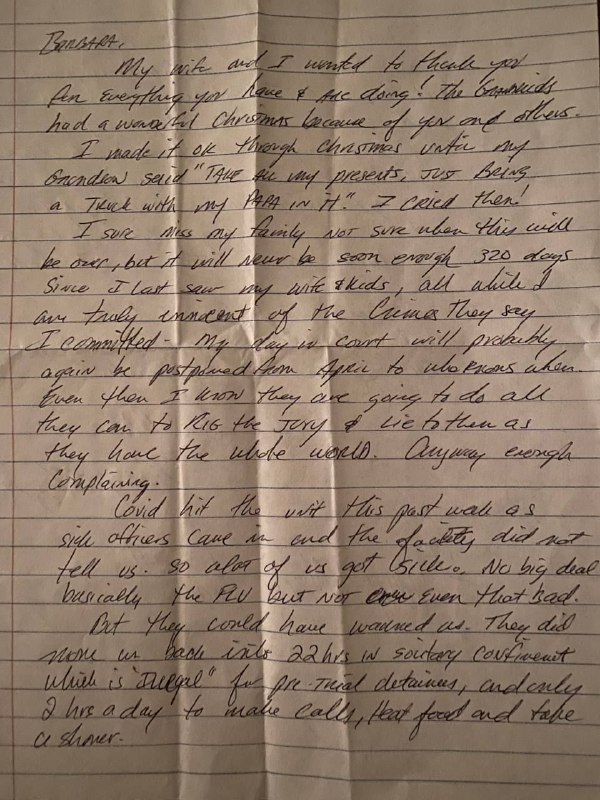 BARBARA,
My wife and I wanted to thank you
for everything you have & are doing! The Grandkids
had a wonderful Christmas because of you and others.
I made it ok through Christmas until my
Grandson said "TAKE All my presents, JUST BRING
a TRUCK with my PAPA IN IT." I cried then!
I sure miss my family NOT sure when this will
be over, but it will never be soon enough 320 days
Since I last saw my wife & kids, all while I
am truly innocent of the Crimes They say
I committed - My day in court will probably
again be postponed from April to who knows when.
Even then I know they are going to do all
they can to RIG the JURY & Lie to them as
they have the whole WORLD. Anyway enough
Complaining.
Covid hit the unit this past week as
sick officers came in and the facility did not
tell us. So alot of us got sick. No big deal
basically the FLU but NOT Even that bad.
But they could have warned us. They did
move us back into 22 hrs in soitary confinement
which is "Illegal" for pre-Trial detainees, and only
2 hrs a day to make calls, Heat food and take
a shower.